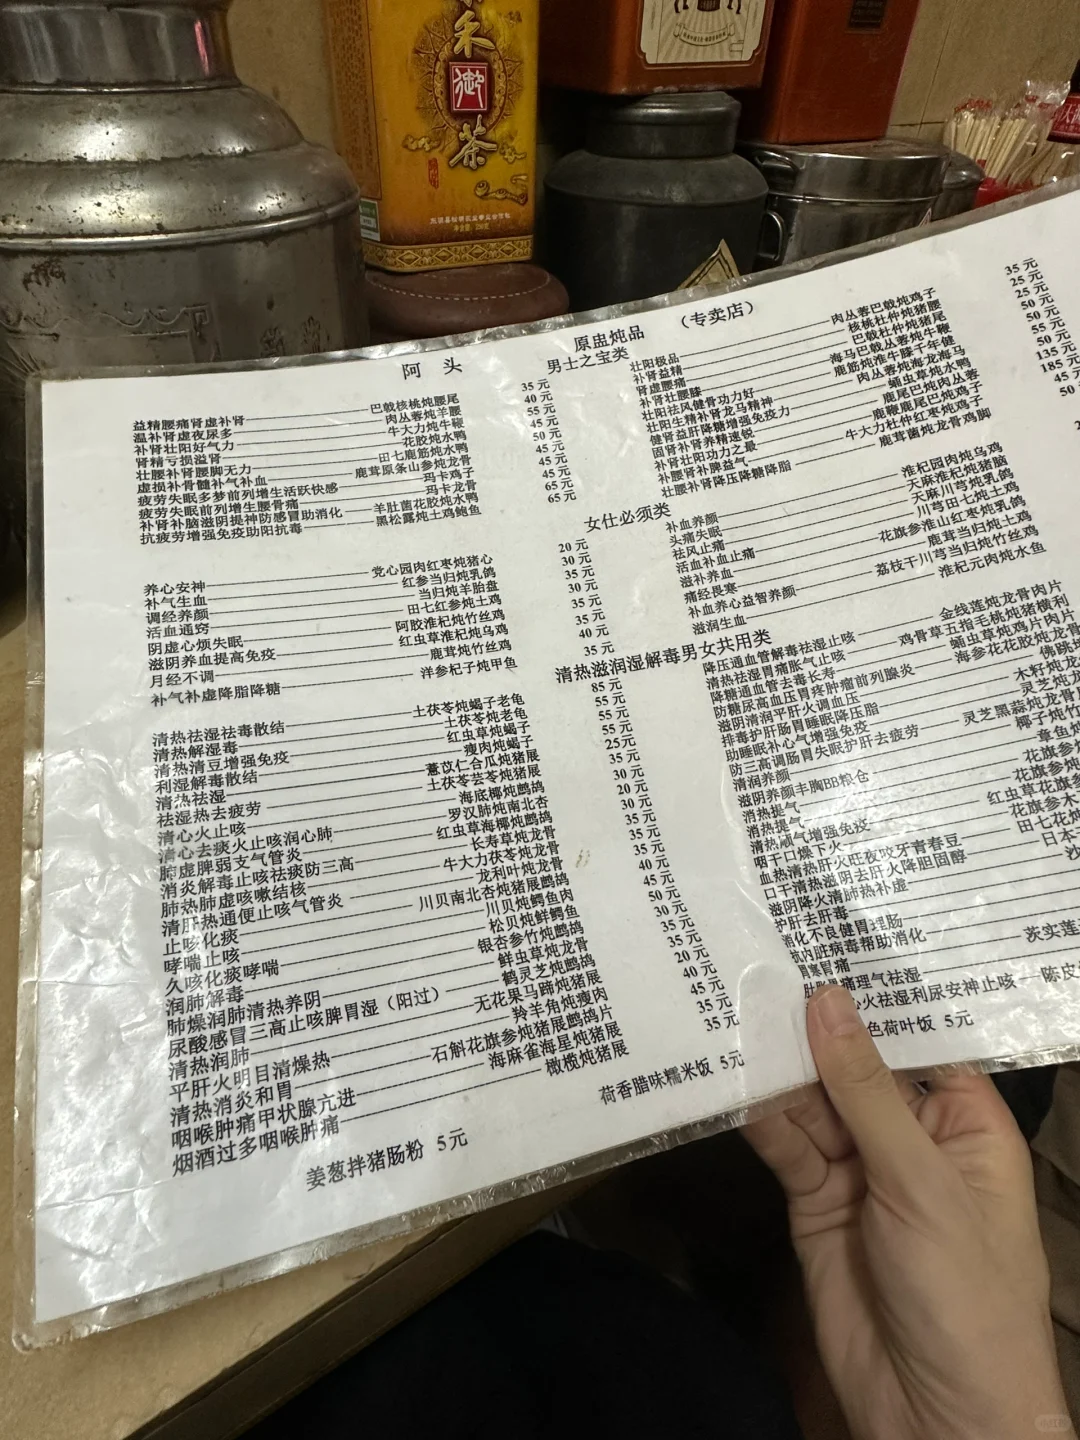 禾
御
茶
阿 头 原盅炖品 （专卖店）
男士之宝类
益精腰痛肾虚补肾 巴戟核桃炖腰尾 35 元
温补肾虚夜尿多 肉丛蓉炖羊腰 40 元
补肾壮阳好气力 牛大力炖牛鞭 55 元
肾精亏损溢肾 花胶炖水鸭 45 元
壮腰补肾腰脚无力 田七鹿筋炖水鸭 50 元
虚损补骨髓补气补血 鹿茸原条山参炖龙骨 45 元
疲劳失眠多梦前列增生活跃快感 玛卡鸡子 45 元
疲劳失眠前列增生腰骨痛 玛卡龙骨 45 元
补肾补脑滋阴提神防感冒助消化 羊肚菌花胶炖水鸭 65 元
抗疲劳增强免疫助阳抗毒 黑松露炖土鸡鲍鱼 65 元
壮阳极品 肉丛蓉巴戟炖鸡子 35 元
补肾益精 核桃杜仲炖猪腰 25 元
肾虚腰痛 巴戟杜仲炖猪尾 25 元
补肾壮腰膝 海马巴戟丛蓉炖牛鞭 50 元
壮阳祛风健骨功力好 鹿筋炖淮牛膝千年健 50 元
壮阳生精补肾龙马精神 肉丛蓉炖海龙海马 55 元
健肾益肝降糖增强免疫力 蛹虫草炖水鸭 50 元
固肾补肾养精速锐 鹿尾巴炖肉丛蓉 135 元
补肾壮阳功力之最 鹿鞭鹿尾巴炖鸡子 185 元
补腰补肾补脾益气 牛大力杜仲红枣炖鸡子 45 元
壮腰补肾降压降糖降脂 鹿茸菌炖龙骨鸡脚 50
女仕必须类
养心安神 党心园肉红枣炖猪心 20 元
补气生血 红参当归炖乳鸽 30 元
调经养颜 当归炖羊胎盘 35 元
活血通窍 田七红参炖土鸡 30 元
阴虚心烦失眠 阿胶淮杞炖竹丝鸡 35 元
滋阴养血提高免疫 红虫草淮杞炖乌鸡 35 元
月经不调 鹿茸炖竹丝鸡 40 元
补气补虚降脂降糖 洋参杞子炖甲鱼 35 元
补血养颜 淮杞园肉炖乌鸡
头痛失眠 天麻淮杞炖猪脑
祛风止痛 天麻川芎炖乳鸽
活血补血止痛 川芎田七炖土鸡
滋补养血 花旗参淮山红枣炖乳鸽
痛经畏寒 鹿茸当归炖土鸡
补血养心益智养颜 荔枝干川芎当归炖竹丝鸡
滋润生血 淮杞元肉炖水鱼
清热滋润湿解毒男女共用类
清热祛湿祛毒散结 土茯苓炖蝎子老龟 85 元
清热解湿毒 土茯苓炖老龟 55 元
清热清豆增强免疫 红虫草炖蝎子 55 元
利湿解毒散结 瘦肉炖蝎子 55 元
清热祛湿 薏苡仁合瓜炖猪展 25元
祛湿热去疲劳 土茯苓芸苓炖猪展 35 元
清心火止咳 海底椰炖鹧鸪 30 元
清心去痰火止咳润心肺 罗汉肺炖南北杏 20 元
肺虚脾弱支气管炎 红虫草海椰炖鹧鸪 30 元
消炎解毒止咳祛痰防三高 长寿草炖龙骨 35 元
肺热肺虚咳嗽结核 牛大力茯苓炖龙骨 35 元
清肝热通便止咳气管炎 龙利叶炖龙骨 40 元
止咳化痰 川贝南北杏炖猪展鹧鸪 45 元
哮喘止咳 川贝炖鳄鱼肉 50 元
久咳化痰哮喘 松贝炖鲜鳄鱼 30 元
润肺解毒 银杏参竹炖鹧鸪 35 元
肺燥润肺清热养阴 鲜虫草炖龙骨 20 元
尿酸感冒三高止咳脾胃湿（阳过） 鹤灵芝炖鹧鸪 40 元
清热润肺 无花果马蹄炖猪展 45 元
平肝火明目清燥热 羚羊角炖瘦肉 35 元
清热消炎和胃 石斛花旗参炖猪展鹧鸪片 35 元
咽喉肿痛甲状腺亢进 海麻雀海星炖猪展
烟酒过多咽喉肿痛 橄榄炖猪展
降压通血管解毒祛湿止咳 金线莲炖龙骨肉片
清热祛湿胃痛胀气止咳 鸡骨草五指毛桃炖猪横利
降糖通血管去毒长寿 蛹虫草炖鸡片肉片
防糖尿高血压胃疼肿瘤前列腺炎 海参花花胶炖龙骨
滋阴清润平肝火调血压 佛跳
排毒护肝肠胃睡眠降压脂 木籽炖龙
助睡眠补心气增强免疫 灵芝炖龙
防三高调肠胃失眠护肝去疲劳 灵芝黑蒜炖龙骨
清润养颜 椰子炖竹
滋阴养颜丰胸BB粮仓 章鱼
消热提气 花旗参
消热提气 花旗参炖
清热顺气增强免疫 红虫草花旗参
咽干口燥下火 花旗参木
血热清热肝火旺夜咬牙青春豆 田七花炖
口干清热滋阴去肝火降胆固醇 日本
滋阴降火清肺热补虚 沙
护肝去肝毒
消化不良健胃理肠
抗内脏病毒帮助消化
胃寒胃痛 茨实莲
肚胀胃痛理气祛湿
心火祛湿利尿安神止咳 陈皮
姜葱拌猪肠粉 5元
荷香腊味糯米饭 5元
色荷叶饭 5元